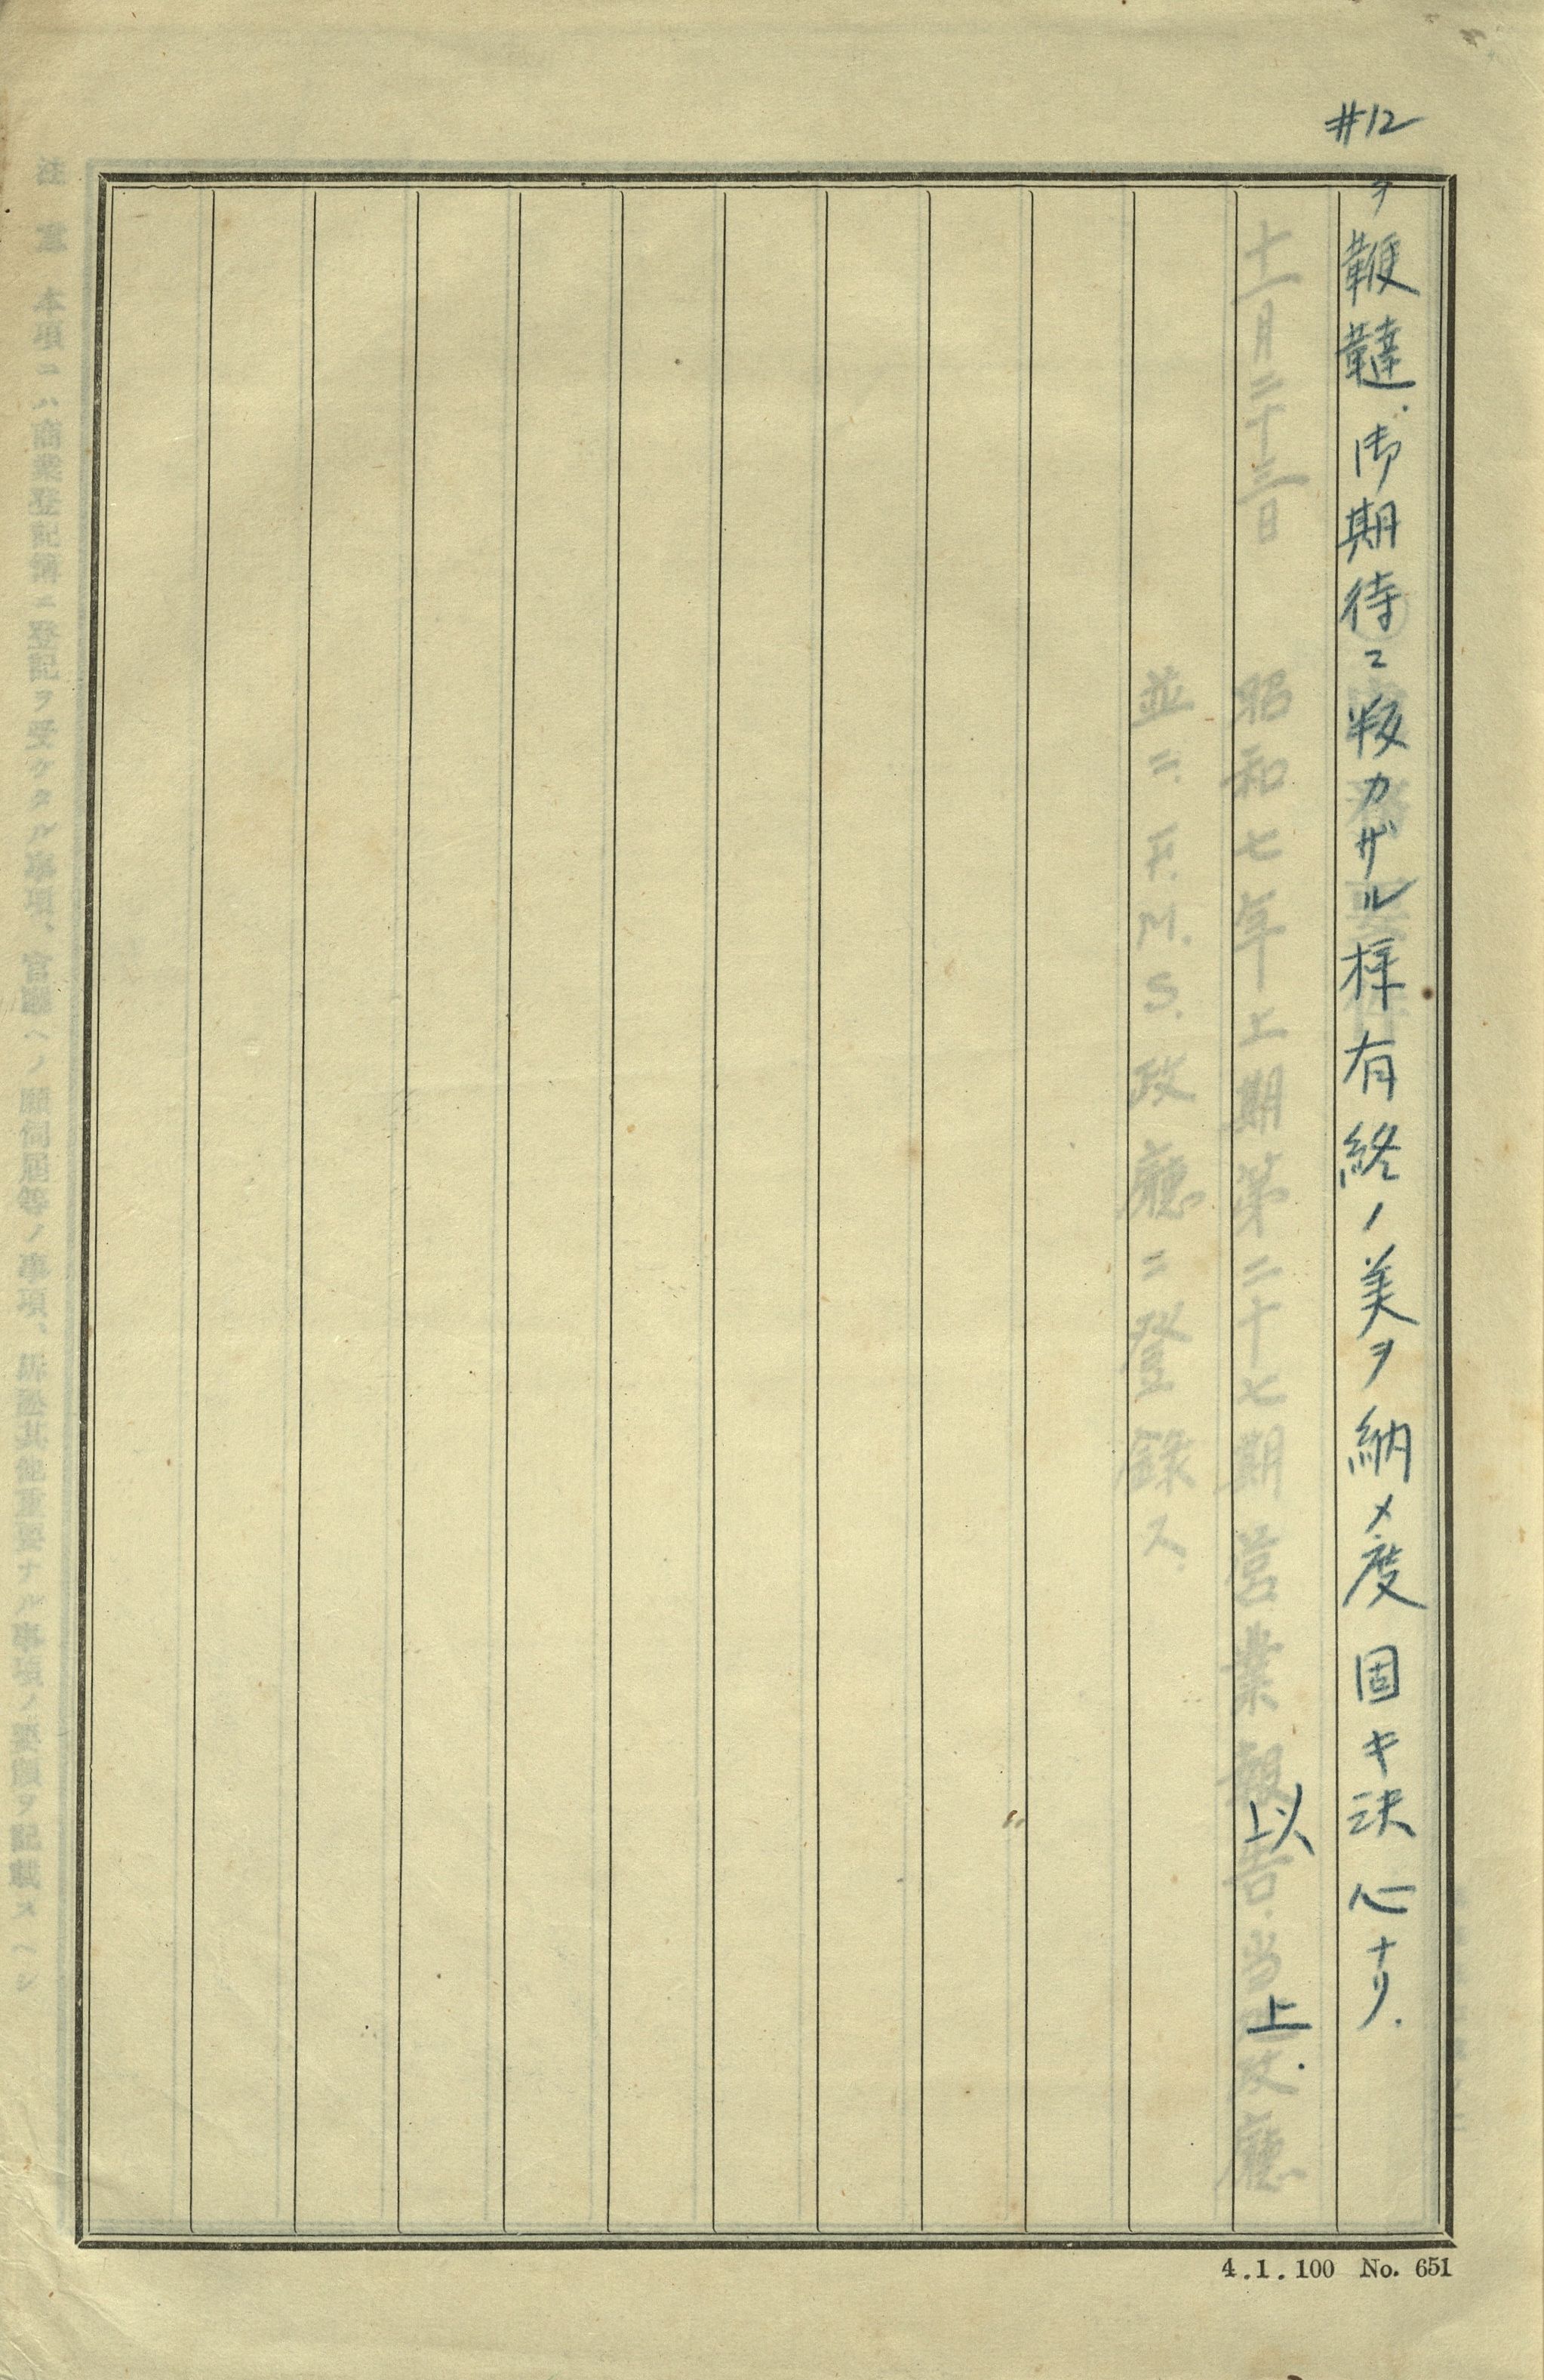 #12
ヲ鞭韃.御期待ニ叛カザル様有終ノ美ヲ納メ度固キ決心ナリ.
以上.
十一月二十三日 昭和七年上期第二十七期営業報告.当政廳
並ニ.F.M.S.政廳ニ登録ス.
注意 本項ニハ商業登記簿ニ登記ヲ受ケタル事項、官廳ヘノ願伺屆等ノ事項、訴訟其他重要ナル事項ノ要領ヲ記載スヘシ
4.1.100 No. 651